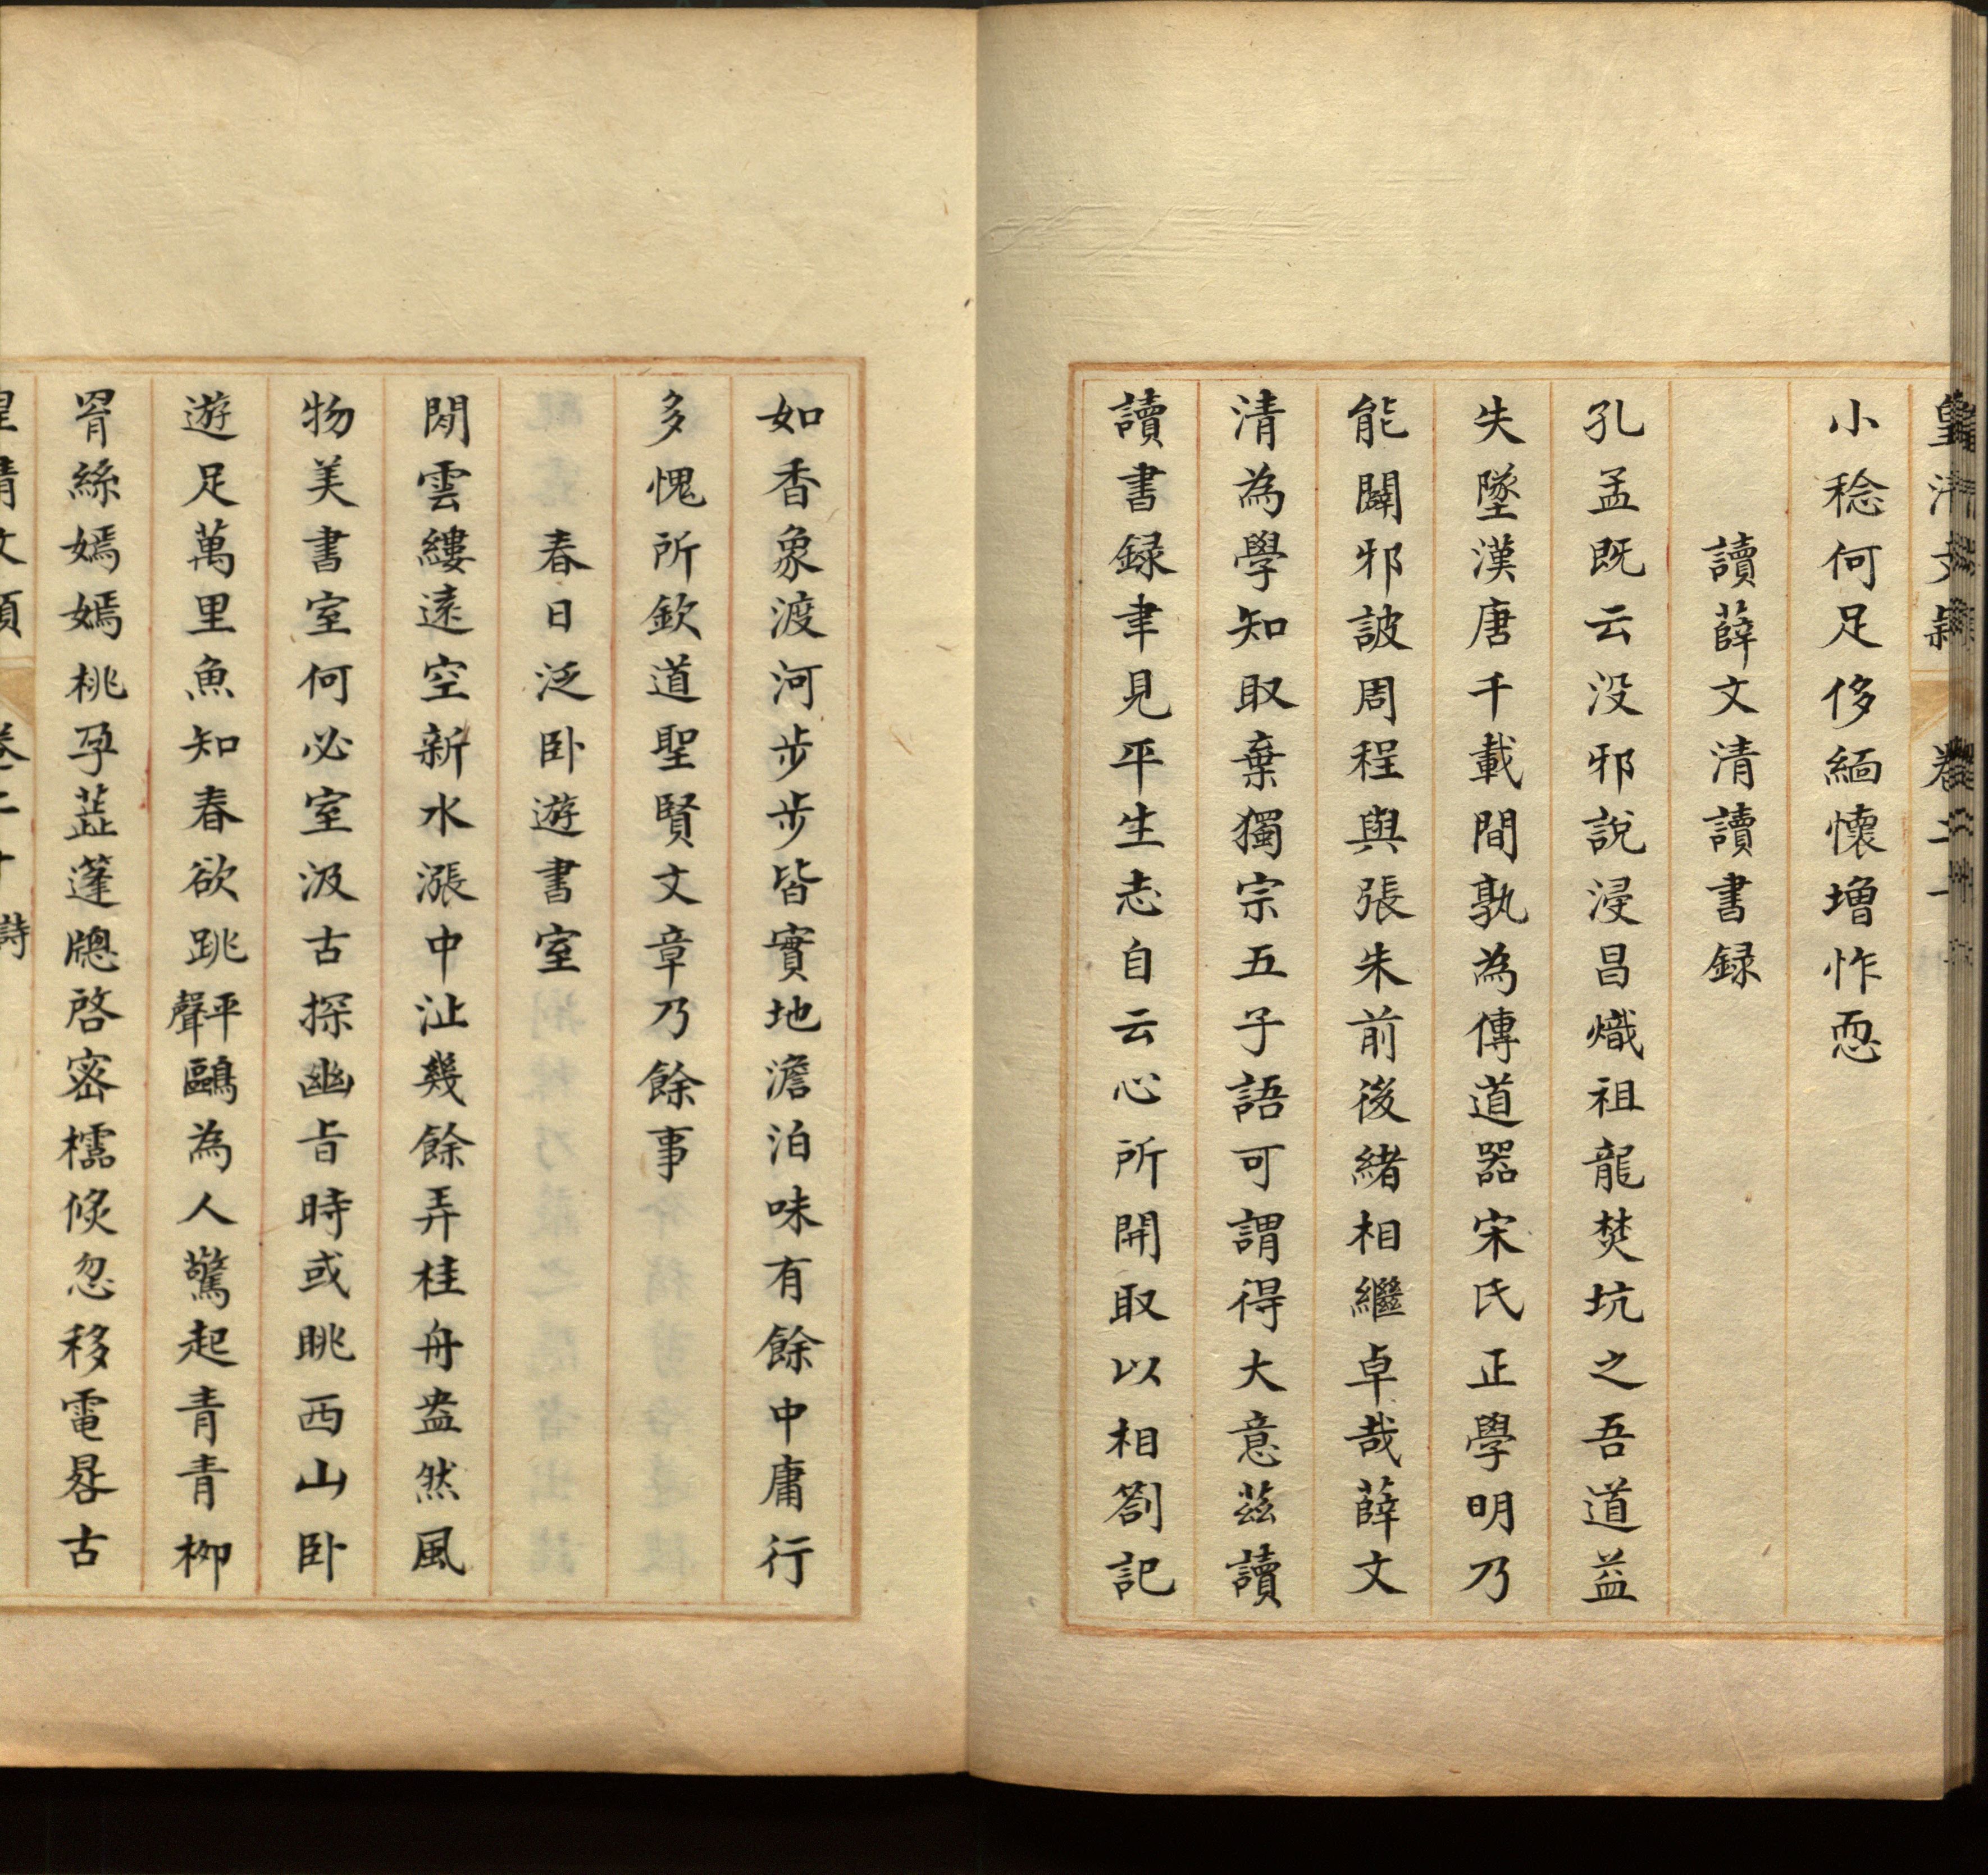 皇清文穎 卷二十
小稔何足侈緬懷增怍恧
讀薛文清讀書録
孔孟既云没邪說浸昌熾祖龍焚坑之吾道益
失墜漢唐千載間孰為傳道器宋氏正學明乃
能闢邪詖周程與張朱前後緒相繼卓哉薛文
清為學知取棄獨宗五子語可謂得大意茲讀
讀書録聿見平生志自云心所開取以相劄記
如香象渡河步步皆實地澹泊味有餘中庸行
多愧所欽道聖賢文章乃餘事
春日泛卧遊書室
閒雲縷遠空新水漲中沚幾餘弄桂舟盎然風
物美書室何必室汲古探幽旨時或眺西山卧
遊足萬里魚知春欲跳平聲鷗為人驚起青青柳
罥絲嫣嫣桃孕蕋蓬牕啓宻櫺倐忽移電晷古
皇清文穎 卷二十 詩